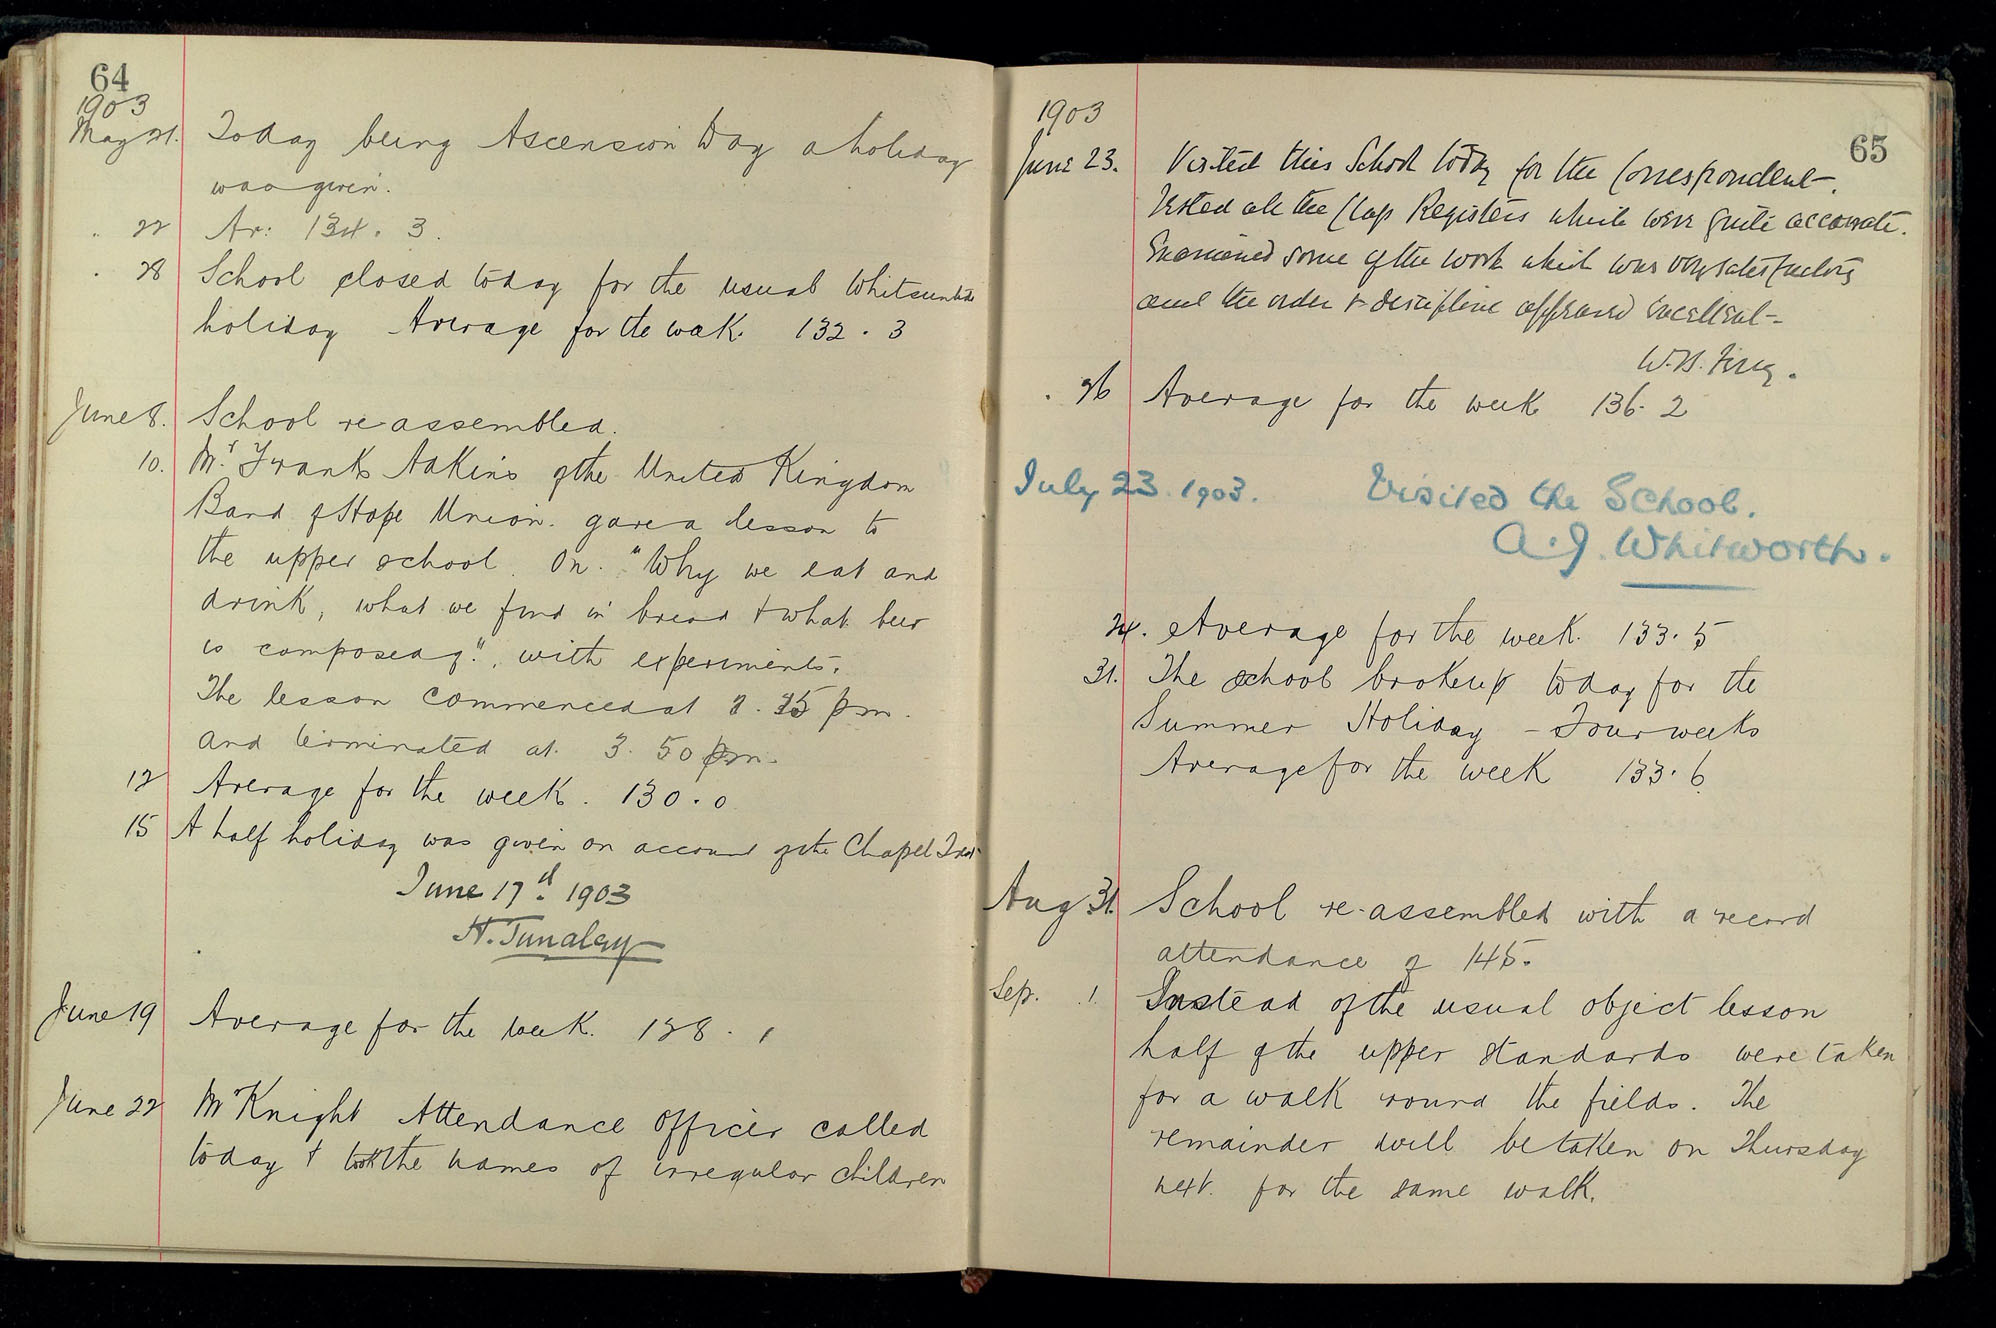 64
1903
May 21. Today being Ascension Day a holiday
was given.
" 22 Av: 134.3.
" 28 School closed today for the usual Whitsuntide
holiday Average for the week. 132.3
June 8. School re-assembled.
10. Mr. Frank Adkins of the United Kingdom
Band of Hope Union. gave a lesson to
the upper school. On. "Why we eat and
drink, what we find in bread & what beer
is composed of.", with experiments.
The lesson commenced at pm.
and terminated at. 3.50 pm.
12 Average for the week. 130.0
15 A half holiday was given on account of the Chapel Treat
June 17th 1903
H. Tunaley
June 19 Average for the week. 128.1
June 22 Mr Knight Attendance Officer called
today & took the names of irregular children
65
1903
June 23. Visited this School today for the Correspondent.
Tested all the Class Registers which were quite accurate.
Examined some of the work which was very satisfactory
and the order & discipline appeared excellent—
W.H.
" 26 Average for the week 136.2
July 23. 1903. Visited the School.
A. J. Whitworth.
24. Average for the week. 133.5
31. The school broke up today for the
Summer Holiday – Four weeks
Average for the week 133.6
Aug 31. School re-assembled with a record
attendance of 145.
Sep. 1. Instead of the usual object lesson
half of the upper standards were taken
for a walk round the fields. The
remainder will be taken on Thursday
next. for the same walk.